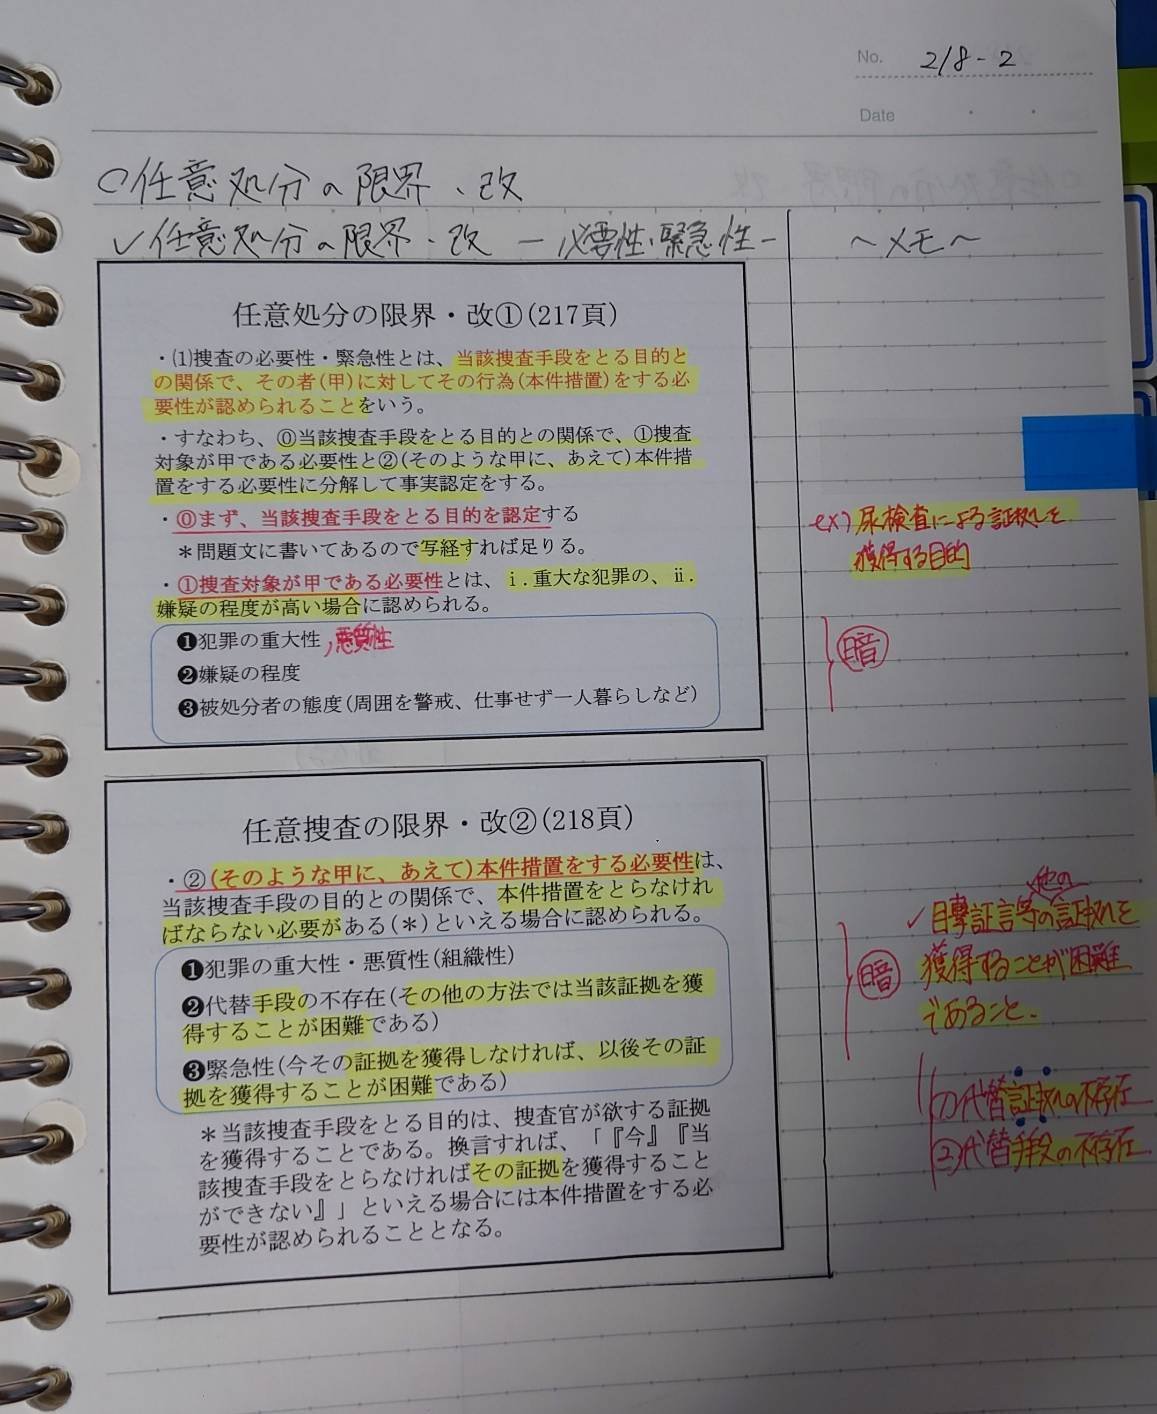 No. 218-2
Date
○任意処分の限界・改
✓任意処分の限界・改 ー必要性・緊急性ー
～メモ～
任意処分の限界・改①(217頁)
・⑴捜査の必要性・緊急性とは、当該捜査手段をとる目的と
の関係で、その者(甲)に対してその行為(本件措置)をする必
要性が認められることをいう。
・すなわち、⓪当該捜査手段をとる目的との関係で、①捜査
対象が甲である必要性と②(そのような甲に、あえて)本件措
置をする必要性に分解して事実認定をする。
・⓪まず、当該捜査手段をとる目的を認定する
＊問題文に書いてあるので写経すれば足りる。
・①捜査対象が甲である必要性とは、ⅰ.重大な犯罪の、ⅱ.
嫌疑の程度が高い場合に認められる。
❶犯罪の重大性,悪質性
❷嫌疑の程度
❸被処分者の態度(周囲を警戒、仕事せず一人暮らしなど)
ex)尿検査による証拠を
獲得する目的
暗
任意捜査の限界・改②(218頁)
・②(そのような甲に、あえて)本件措置をする必要性は、
当該捜査手段の目的との関係で、本件措置をとらなけれ
ばならない必要がある(＊)といえる場合に認められる。
❶犯罪の重大性・悪質性(組織性)
❷代替手段の不存在(その他の方法では当該証拠を獲
得することが困難である)
❸緊急性(今その証拠を獲得しなければ、以後その証
拠を獲得することが困難である)
＊当該捜査手段をとる目的は、捜査官が欲する証拠
を獲得することである。換言すれば、「『今』『当
該捜査手段をとらなければその証拠を獲得すること
ができない』」といえる場合には本件措置をする必
要性が認められることとなる。
他の
✓目撃証言等の証拠を
獲得することが困難
であること.
暗
①代替証拠の不存在
②代替手段の不存在